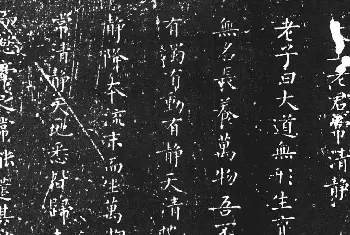 老君常清靜
老子曰大道無形生育
無名長養萬物吾不
有濁有動有靜天清地
靜降本流末而生萬物
常清靜天地悉皆歸
之常能遣其